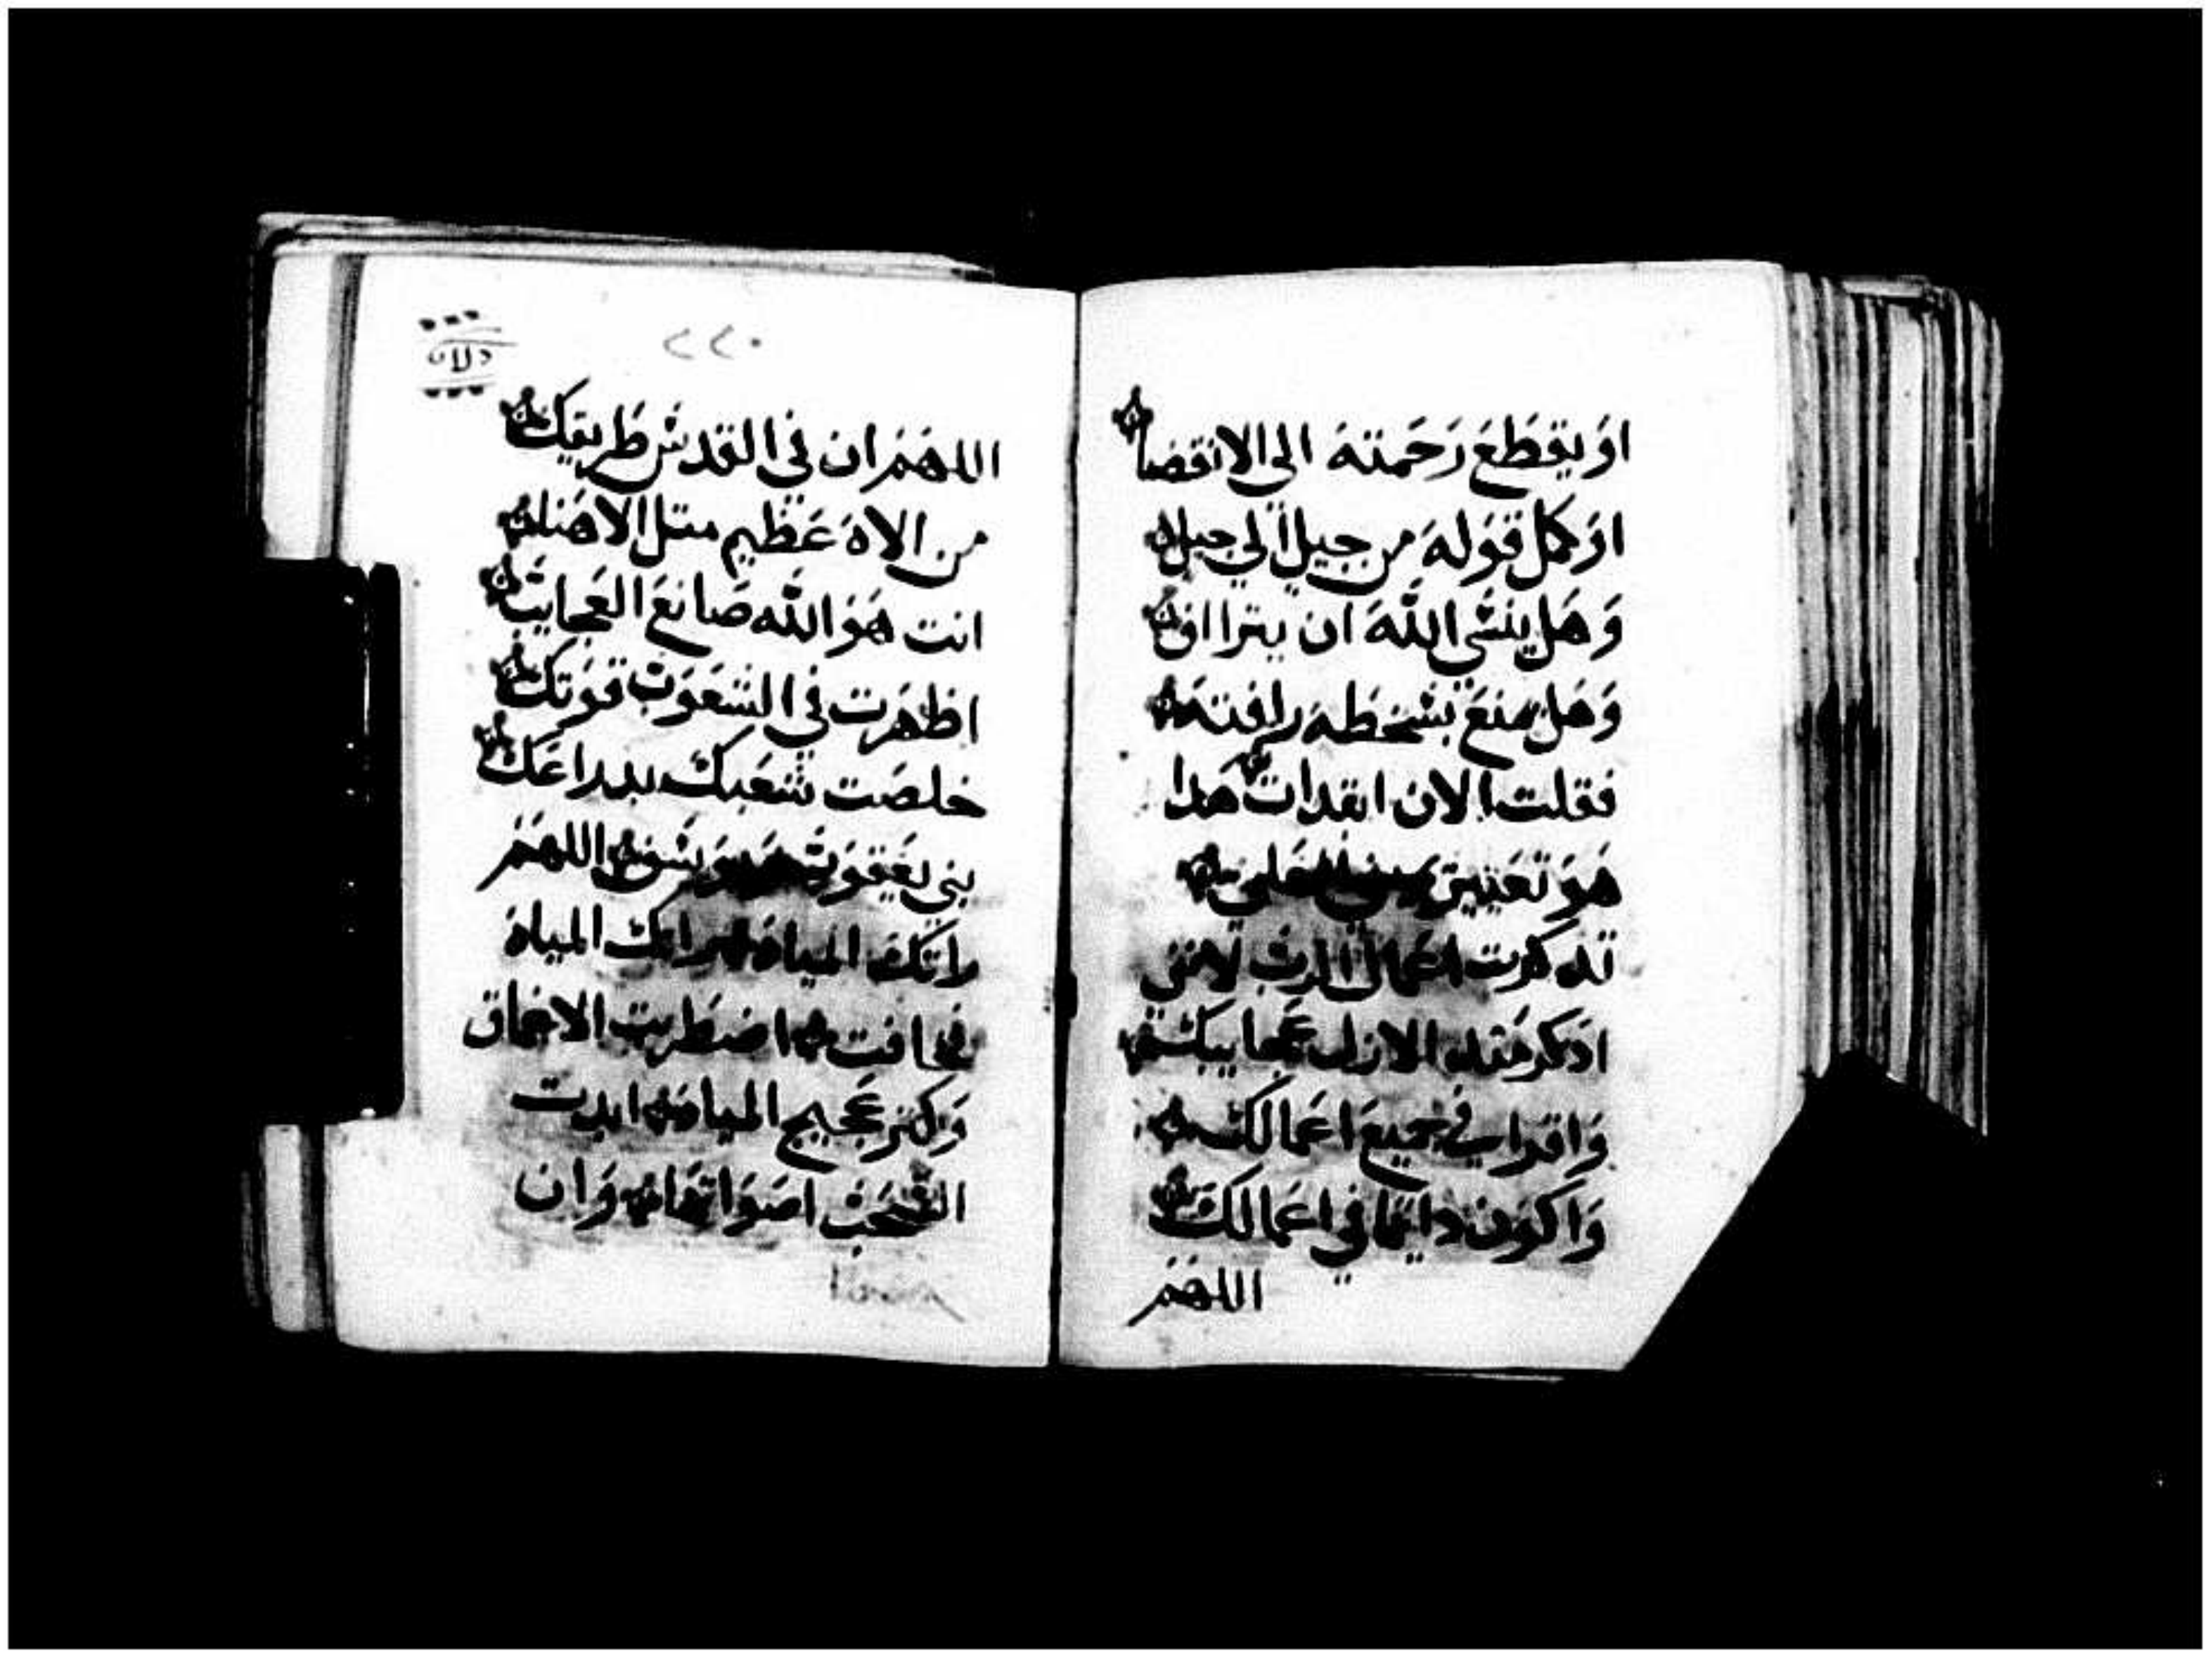 او يقطع رحمته الى الانقضا
او كمل قوله من جيل الي جيل
وهل ينسى الله ان يتراأف
وهل يمنع بسخطه رافته
فقلت الان ابتدات هدا
هو تغيير يمين العلي
تدكرت اعمال الرب لانني
ادكر مند الازل عجايبك
واقرا في جميع اعمالك
واكون دايما في اعمالك
اللهم
٢٢٠
اللهم ان في القدس طريقك
من الاه عظيم متل الاهنا
انت هو الله صانع العجايب
اظهرت في الشعوب قوتك
خلصت شعبك بدراعك
بني يعقوب ويوسف اللهم
راتك المياه راتك المياه
فخافت اضطربت الاعماق
وكتر عجيج المياه ابدت
السحب اصواتها وان